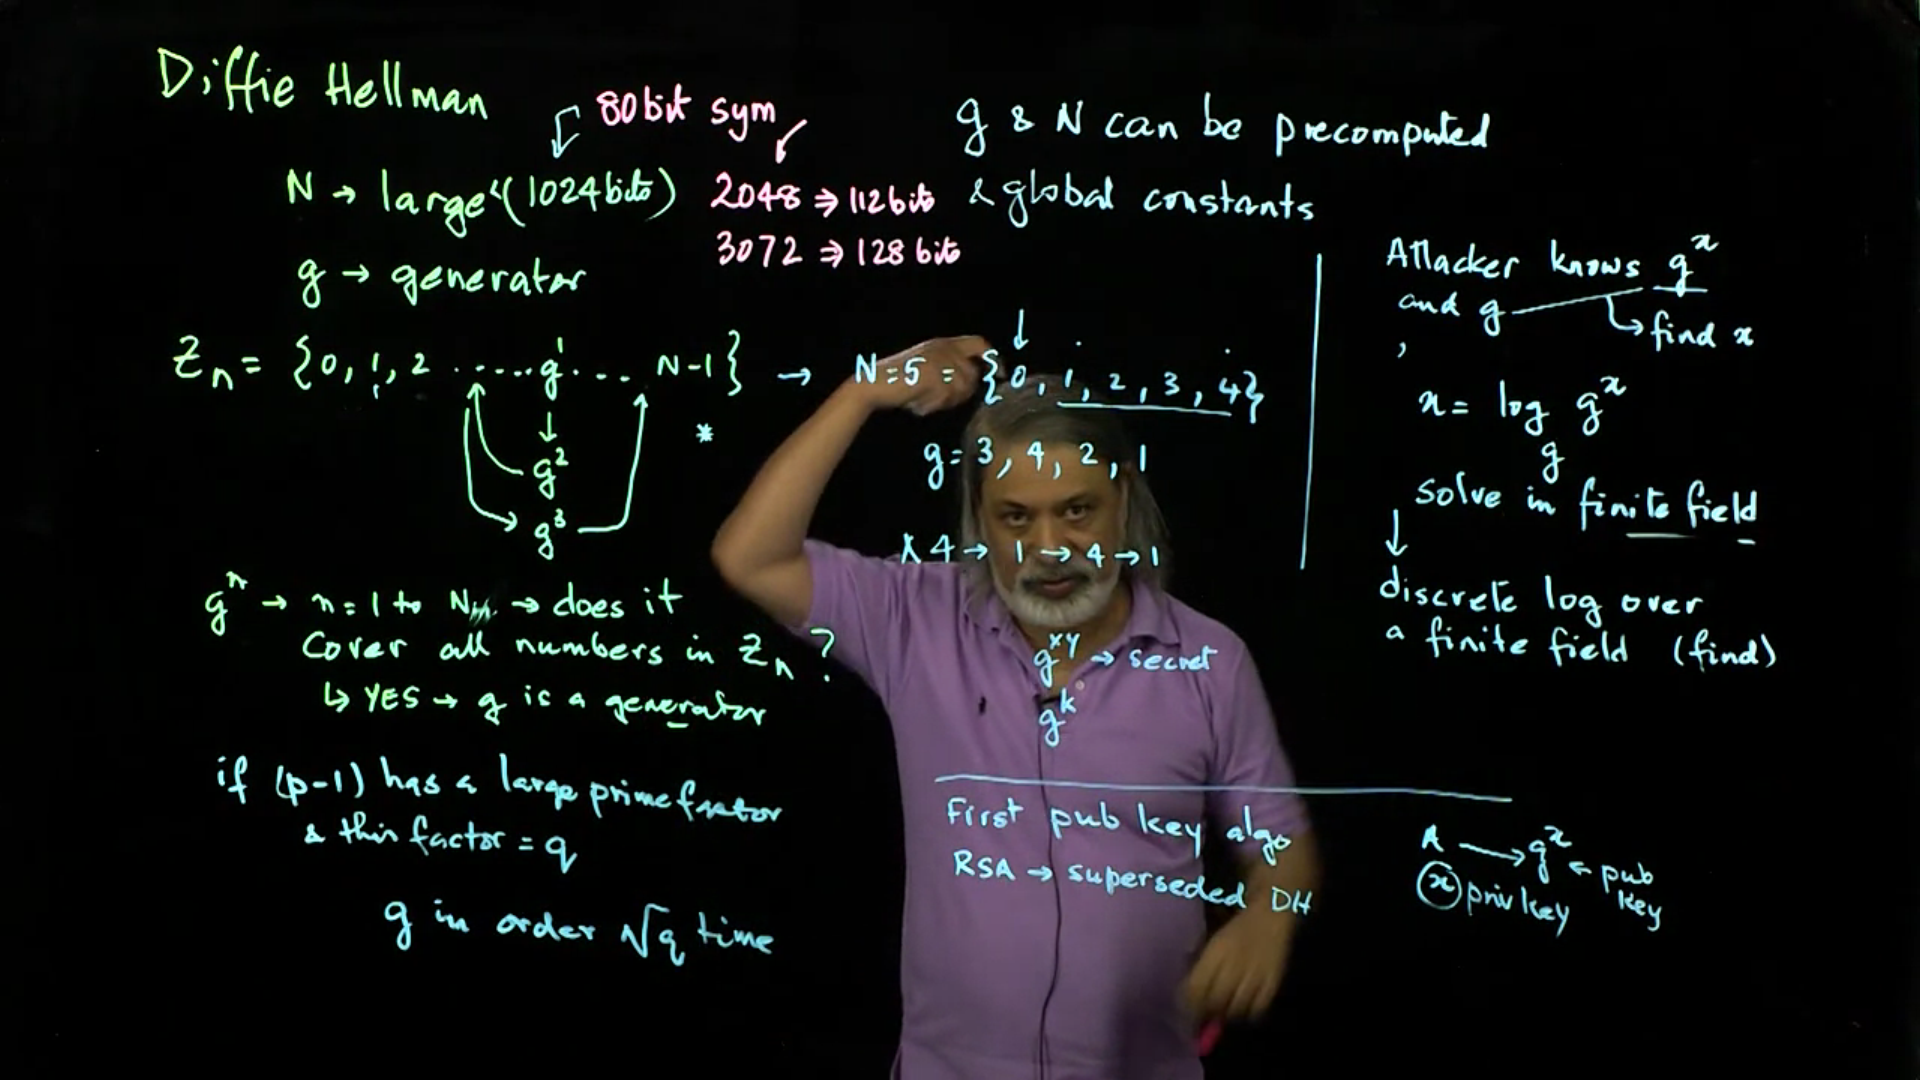 Diffie Hellman
80 bit sym
N → large (1024 bits)
2048 ⇒ 112 bits
3072 ⇒ 128 bits
g → generator
g & N can be precomputed
& global constants
Zn = {0, 1, 2 ..... g¹ ... N-1} → N=5 = {0, 1, 2, 3, 4}
*
g²
g³
g = 3, 4, 2, 1
4 → 1 → 4 → 1
gⁿ → n = 1 to N → does it
Cover all numbers in Zn ?
↳ YES → g is a generator
if (p-1) has a large prime factor
& this factor = q
g in order √q time
g^xy → secret
g^k
Attacker knows g^x
and g
↳ find x
,
x = log_g g^x
solve in finite field
↓
discrete log over
a finite field (find)
First pub key algo
RSA → superseded DH
A → g^x ← pub key
x priv key